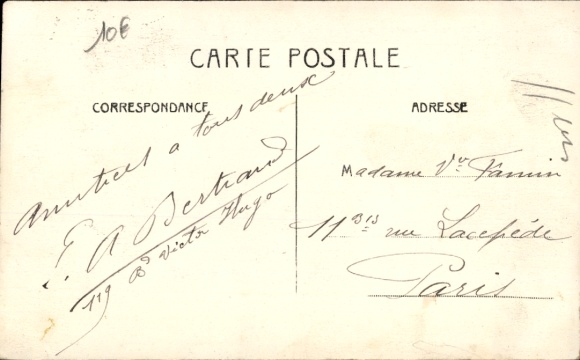 10€
CARTE POSTALE
CORRESPONDANCE
Amitiés a tous deux
A Bertrand
119 Bd Victor Hugo
ADRESSE
Madame Vve
11 bis rue Lacepéde
Paris